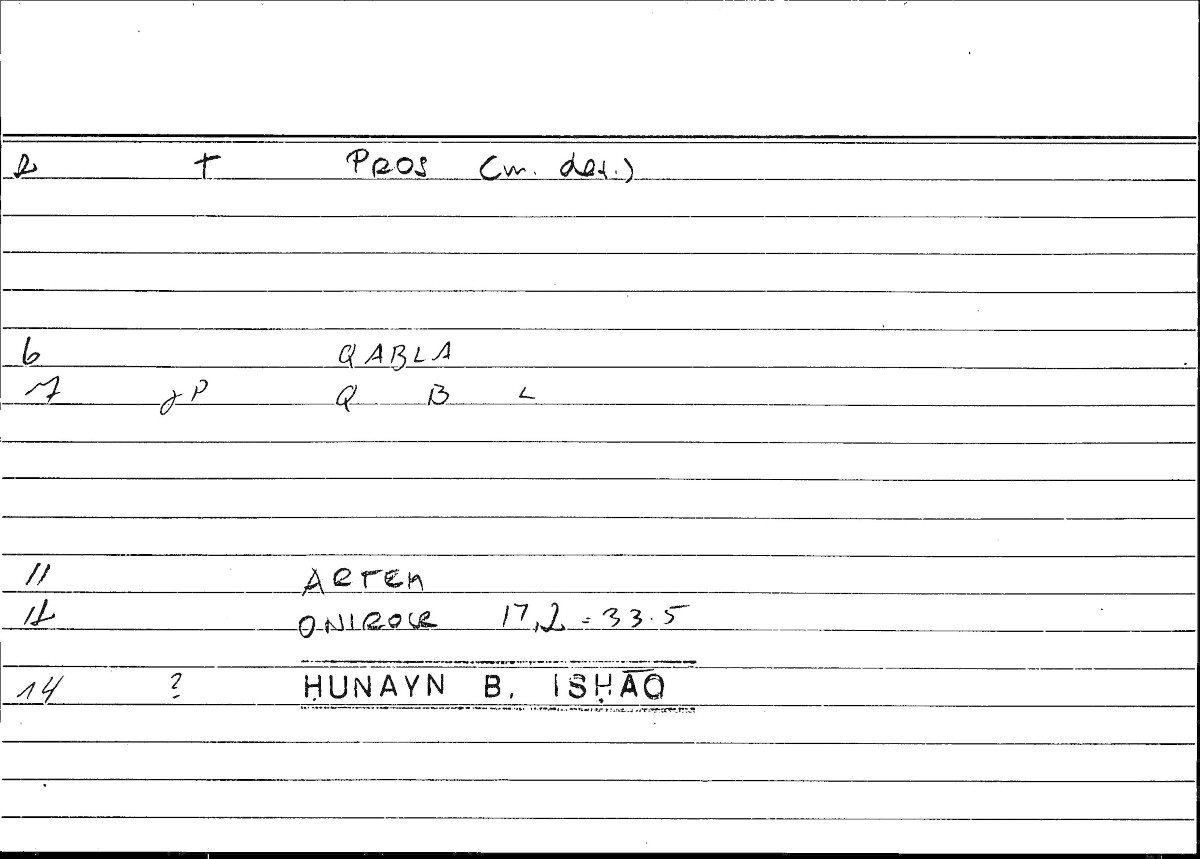 2 + PROS (m. dat.)
6 QABLA
7 gP Q B L
11 ARTEM
12 ONIROCR 17,2 = 33.5
14 ? ḤUNAYN B. ISḤĀQ